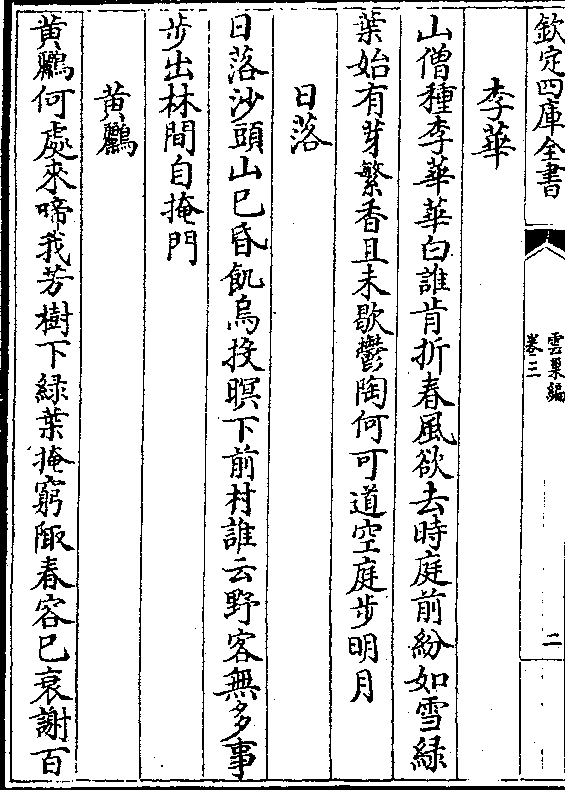 欽定四庫全書
雲巢編
卷三
二
李華
山僧種李華華白誰肯折春風欲去時庭前紛如雪緑
葉始有芽繁香且未歇鬱陶何可道空庭步明月
日落
日落沙頭山已昏飢烏投暝下前村誰云野客無多事
步出林間自掩門
黄鸝
黄鸝何處來啼我芳樹下緑葉掩窮陬春容已衰謝百